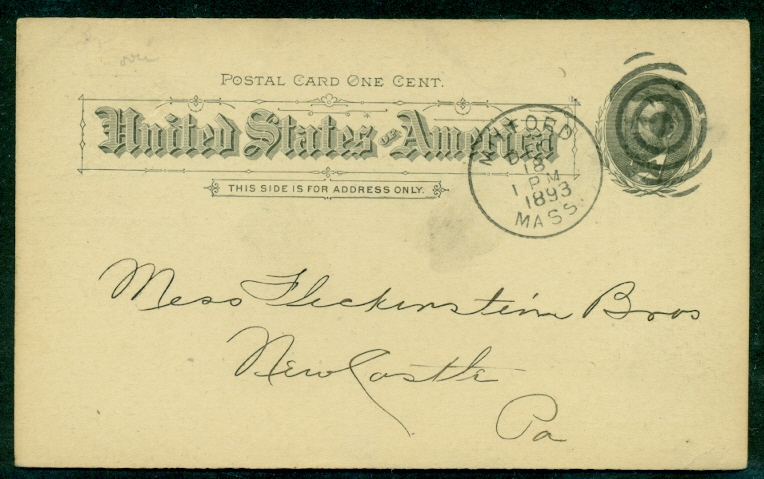 over
POSTAL CARD ONE CENT.
United States of America
THIS SIDE IS FOR ADDRESS ONLY.
MILFORD
DEC
18
1 PM
1893
MASS.
Mess Fleckinstein Bros
New Castle
Pa